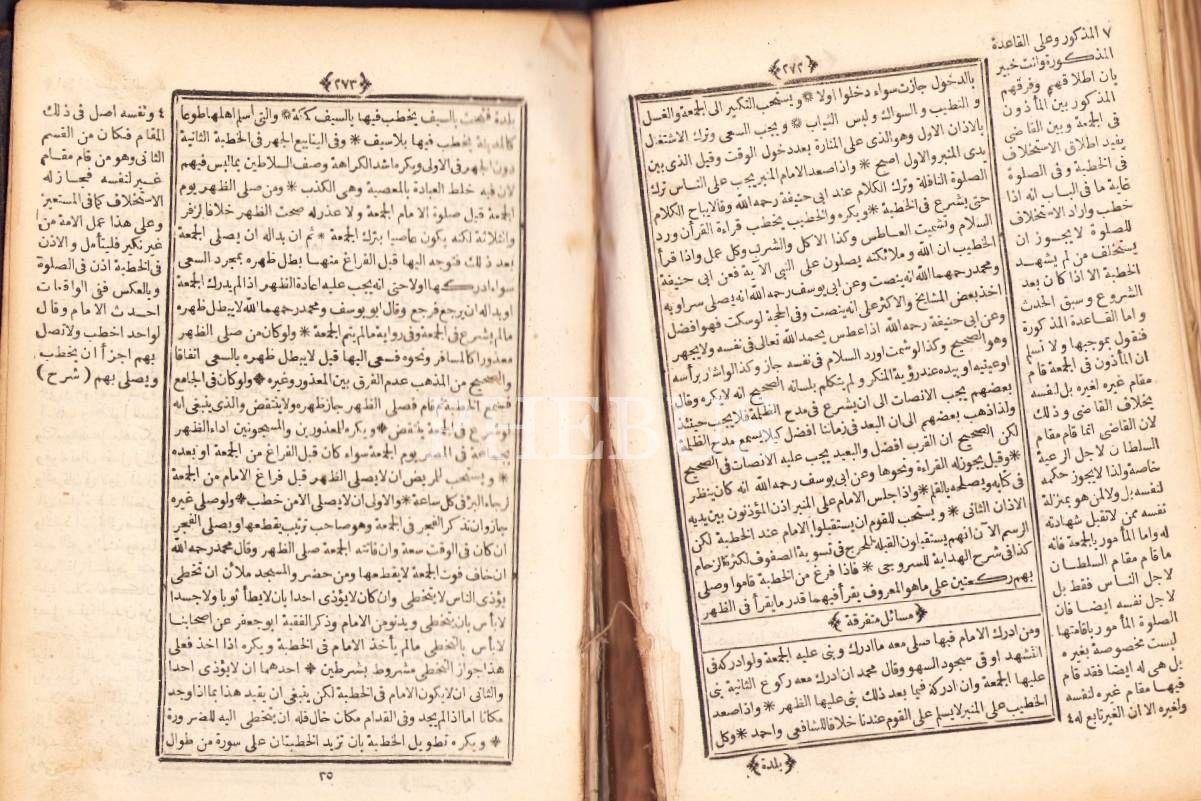 ﴿٢٧٢﴾
بالدخول جازت سواء دخلوا اولا * ويستحب التكبير الى الجمعة والغسل
و التطيب و السواك ولبس الثياب * ويجب السعى وترك الاشتغال
بالاذان الاول وهو الذى على المنارة بعد دخول الوقت وقيل الذى بين
يدى المنبر والاول اصح * واذا صعد الامام المنبر يجب على الناس ترك
الصلوة النافلة وترك الكلام عند ابى حنيفة رحمه الله وقالا يباح الكلام
حتى يشرع فى الخطبة * ويكره والخطيب يخطب قراءة القرأن ورد
السلام وتشميت العاطس وكذا الاكل والشرب وكل عمل واذا قرأ
الخطيب ان الله وملائكته يصلون على النبى الآية فعن ابى حنيفة
ومحمد رحمهما الله انه ينصت وعن ابى يوسف رحمه الله انه يصلى سرا وبه
اخذ بعض المشايخ والاكثر على انه ينصت وفى الحجة لو سكت فهو افضل
وعن ابى حنيفة رحمه الله اذا عطس يحمد الله تعالى فى نفسه ولا يجهر
وهو الصحيح وكذا لو شمت او رد السلام فى نفسه جاز وكذا لو اشار برأسه
او عينيه او يده عند رؤية المنكر و لم يتكلم بلسانه الصحيح انه لا يكره وقال
بعضهم يجب الانصات الى ان يشرع فى مدح الظلمة فلا يجب حينئذ
ولذا ذهب بعضهم الى ان البعد فى زماننا افضل كيلا يسمع مدح الظلمة
لكن الصحيح ان القرب افضل والبعيد يجب عليه الانصات فى الصحيح
* وقيل يجوز له القراءة ونحوها وعن ابى يوسف رحمه الله انه كان ينظر
فى كتابه ويصلحه بالقلم * واذا جلس الامام على المنبر اذن المؤذنون بين يديه
الاذان الثانى * و يستحب للقوم ان يستقبلوا الامام عند الخطبة لكن
الرسم الآن انهم يستقبلون القبلة للحرج فى تسوية الصفوف لكثرة الزحام
كذا فى شرح الهداية للسروجى * فاذا فرغ من الخطبة قاموا وصلى
بهم ركعتين على ما هو المعروف يقرأ فيهما قدر ما يقرأ فى الظهر
﴿مسائل متفرقة﴾
ومن ادرك الامام فيها صلى معه ما ادرك وبنى عليه الجمعة ولو ادركه فى
التشهد او فى سجود السهو وقال محمد ان ادرك معه ركوع الثانية بنى
عليها الجمعة وان ادركه فيما بعد ذلك بنى عليها الظهر * واذا صعد
الخطيب على المنبر لا يسلم على القوم عندنا خلافا للشافعى واحمد * وكل
﴿بلدة﴾
٧ المذكور وعلى القاعدة
المذكورة وانت خبير
بان اطلاقهم وفرقهم
المذكور بين المأذون
فى الجمعة وبين القاضى
يفيد اطلاق الاستخلاف
فى الخطبة وفى الصلوة
غاية ما فى الباب انه اذا
خطب واراد الاستخلاف
للصلوة لا يجوز ان
يستخلف من لم يشهد
الخطبة الا اذا كان بعد
الشروع وسبق الحدث
و اما القاعدة المذكورة
فنقول بموجبها ولا نسلم
ان المأذون فى الجمعة قام
مقام غيره لغيره بل لنفسه
بخلاف القاضى وذلك
لان القاضى انما قام مقام
السلطان لاجل الرعية
خاصة ولذا لا يجوز حكمه
لنفسه بل ولا لمن هو بمنزلة
نفسه ممن لا تقبل شهادته
له واما المأمور بالجمعة فانه
ما قام مقام السلطان
لاجل الناس فقط بل
لاجل نفسه ايضا فان
الصلوة المأمور باقامتها
ليست مخصوصة بغيره
بل هى له ايضا فقد قام
فيها مقام غيره لنفسه
ولغيره الا ان الغير تابع له ٤
﴿٢٧٣﴾
بلدة فتحت بالسيف يخطب فيها بالسيف كمكة * والتى أسلم اهلها طوعا
كالمدينة يخطب فيها بلا سيف * وفى الينابيع الجهر فى الخطبة الثانية
دون الجهر فى الاولى ويكره اشد الكراهة وصف السلاطين بما ليس فيهم
لان فيه خلط العبادة بالمعصية وهى الكذب * ومن صلى الظهر يوم
الجمعة قبل صلوة الامام الجمعة ولا عذر له صحت الظهر خلافا لزفر
والثلاثة لكنه يكون عاصيا بترك الجمعة * ثم ان بداله ان يصلى الجمعة
بعد ذلك فتوجه اليها قبل الفراغ منها بطل ظهره بمجرد السعى
سواء ادركها اولا حتى انه يجب عليه اعادة الظهر اذا لم يدرك الجمعة
او بداله ان يرجع فرجع وقال ابو يوسف ومحمد رحمهما الله لا يبطل ظهره
مالم يشرع فى الجمعة وفى رواية مالم يتم الجمعة * ولو كان من صلى الظهر
معذورا كالمسافر ونحوه فسعى اليها قبل لا يبطل ظهره بالسعى اتفاقا
والصحيح من المذهب عدم الفرق بين المعذور وغيره * ولو كان فى الجامع
فسمع الخطبة ثم قام فصلى الظهر جاز ظهره ولا ينتقض والذى ينبغى انه
لو شرع فى الجمعة ينتقض * ويكره للمعذورين والمسجونين اداء الظهر
بجماعة فى المصر يوم الجمعة سواء كان قبل الفراغ من الجمعة او بعده
* و يستحب للمريض ان لا يصلى الظهر قبل فراغ الامام من الجمعة
لرجاء البرء فى كل ساعة * والاولى ان لا يصلى الا من خطب * ولو صلى غيره
جاز وان تذكر الفجر فى الجمعة وهو صاحب ترتيب يقطعها ويصلى الفجر
ان كان فى الوقت سعة وان فاتته الجمعة صلى الظهر وقال محمد رحمه الله
ان خاف فوت الجمعة لا يقطعها ومن حضر والمسجد ملأن ان تخطى
يؤذى الناس لا يتخطى وان كان لا يؤذى احدا بان لا يطأ ثوبا ولا جسدا
لا بأس بان يتخطى ويدنو من الامام وذكر الفقيه ابو جعفر عن اصحابنا
لا بأس بالتخطى مالم يأخذ الامام فى الخطبة ويكره اذا اخذ فعلى
هذا جواز التخطى مشروط بشرطين * احدهما ان لا يؤذى احدا
والثانى ان لا يكون الامام فى الخطبة لكن ينبغى ان يقيد هذا بما اذا وجد
مكانا اما اذا لم يجد وفى القدام مكان خال فله ان يتخطى اليه للضرورة
* ويكره تطويل الخطبة بان تزيد الخطبتان على سورة من طوال
٣٥
٤ ونفسه اصل فى ذلك
المقام فكان من القسم
الثانى وهو من قام مقام
غيره لنفسه فجاز له
الاستخلاف كما فى المستعير
وعلى هذا عمل الامة من
غير نكير فليتأمل والاذن
فى الخطبة اذن فى الصلوة
وبالعكس ففى الواقعات
احدث الامام وقال
لواحد اخطب ولا تصل
بهم اجزأ ان يخطب
ويصلى بهم (شرح)
PHEBUS